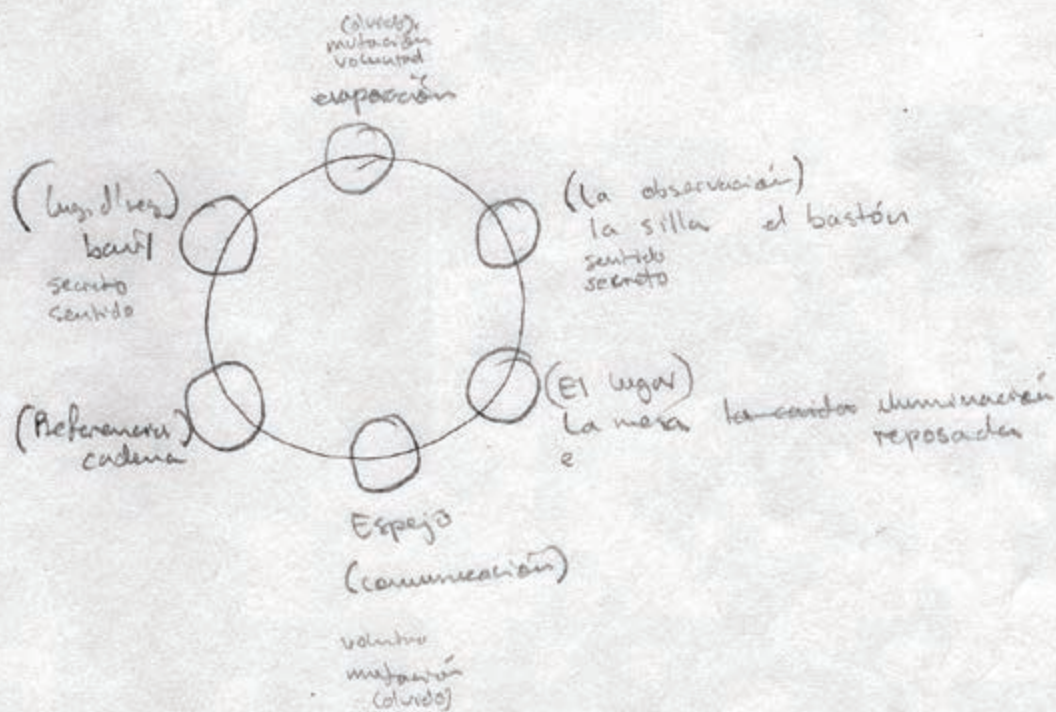 (olvido)
mutación
voluntad
evaporación
baúl
secreto
sentido
(La observación)
la silla el bastón
sentido
secreto
(El lugar)
La mesa la caída iluminación
reposada
e
(Referencia)
cadena
Espejo
(comunicación)
mutación
(olvido)